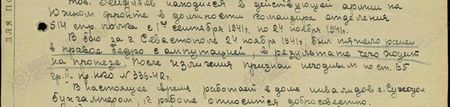 тов. находился в действующей армии на
Южном фронте в должности командира отделения
514 стр. полка с 1го сентября 1941г. по 24 ноября 1941г.
В бою за г. Севастополь 24 ноября 1941г. был тяжело ранен
в правое бедро с ампутацией, в результате чего ходит
на протезе. После излечения признан негодным по ст. 65
гр. II пр. НКО № 336-42г.
В настоящее время работает в доме инвалидов г.
бухгалтером, к работе относится добросовестно.
ДЛЯ ПО